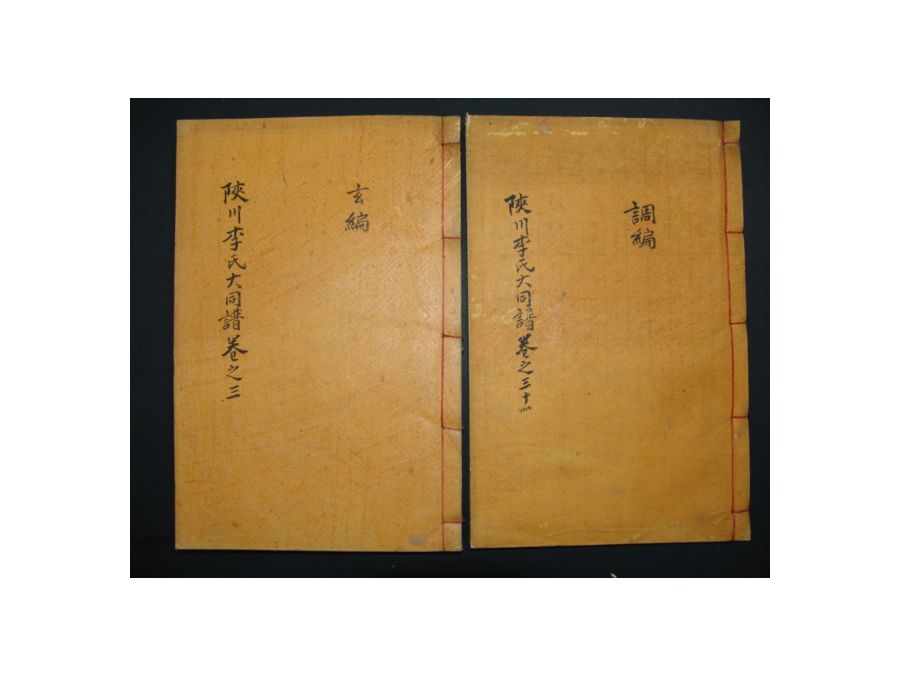 玄編
陜川李氏大同譜卷之三
調編
陜川李氏大同譜卷之三十一